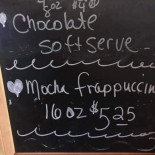 Chocolate
soft serve
Mocha frappuccin
16 oz $5.25